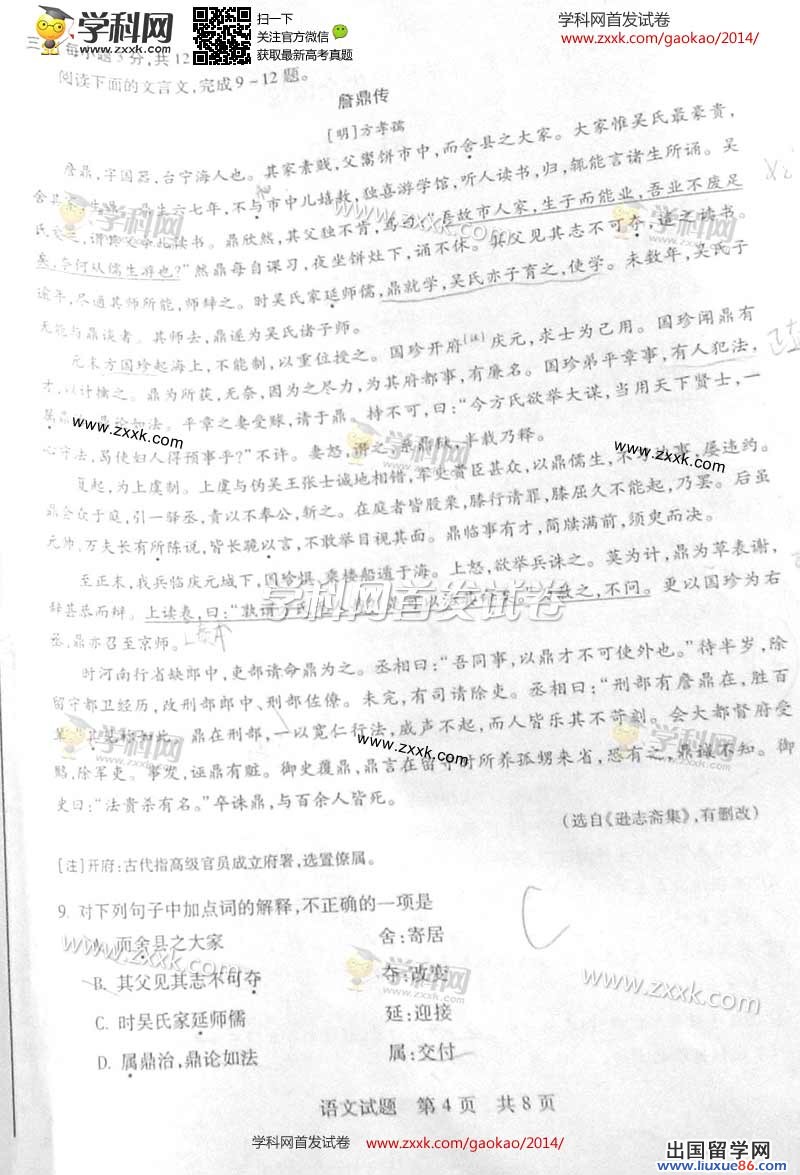 学科网 WWW.ZXXK.COM
扫一下
关注官方微信
获取最新高考真题
学科网首发试卷
www.zxxk.com/gaokao/2014/
三、每小题3分,共12
阅读下面的文言文,完成9-12题。
詹鼎传
[明]方孝孺
詹鼎,字国器,台宁海人也。其家素贱,父鬻饼市中,而舍县之大家。大家惟吴氏最豪贵,
舍其家生鼎。鼎生六七年,不与市中儿嬉敖,独喜游学馆,听人读书,归,辄能言诸生所诵。吴
氏,谓其父令儿读书。鼎欣然,其父独不肯,骂曰:“吾故市人家,生子而能业,吾业不废足
矣,奈何从儒生游也?”然鼎每自课习,夜坐饼灶下,诵不休。其父见其志不可夺,遣之读书。
逾年,尽通其师所能,师辞之。时吴氏家延师儒,鼎就学,吴氏亦子育之,使学。未数年,吴氏子
无能与鼎谈者。其师去,鼎遂为吴氏诸子师。
元末方国珍起海上,不能制,以重位授之。国珍开府[注]庆元,求士为己用。国珍闻鼎有
才,以计擒之。鼎为所获,无奈,因为之尽力,为其府都事,有廉名。国珍弟平章事,有人犯法,
属鼎 鼎论如法。平章之妻受赇,请于鼎。持不可,曰:“今方氏欲举大谋,当用天下贤士,一
心守法,曷使妇人得预事乎?”不许。妻怒,谮之,系鼎狱,半载乃释。
复起,为上虞制。上虞与伪吴王张士诚地相错,军史贵臣甚众,以鼎儒生,不习边事,屡违约。
鼎会众于庭,引一驿丞,责以不奉公,斩之。在庭者皆股栗,膝行请罪,膝屈久不能起,乃罢。后虽
元帅、万夫长有所陈说,皆长跪以言,不敢举目视其面。鼎临事有才,简牍满前,须臾而决。
至正末,我兵临庆元城下,国珍惧,乘楼船遁于海。上怒,欲举兵诛之。莫为计,鼎为草表谢,
辞甚恭而辩。上读表,曰:“孰谓方氏 赦之,不问。更以国珍为右
丞,鼎亦召至京师。
时河南行省缺郎中,吏部请命鼎为之。丞相曰:“吾同事,以鼎才不可使外也。”待半岁,除
留守都卫经历,改刑部郎中、刑部佐僚。未完,有司请除吏。丞相曰:“刑部有詹鼎在,胜百
吏。”其见称如此。鼎在刑部,一以宽仁行法,威声不起,而人皆乐其不苛刻。会大都督府受
赇,除军吏。事发,诬鼎有赃。御史覆鼎,鼎言在留守时所养孤甥来省,恐有之,鼎诚不知。御
史曰:“法贵杀有名。”卒诛鼎,与百余人皆死。
(选自《逊志斋集》,有删改)
[注]开府:古代指高级官员成立府署,选置僚属。
9. 对下列句子中加点词的解释,不正确的一项是
C
A. 而舍县之大家 舍:寄居
B. 其父见其志不可夺 夺:改变
C. 时吴氏家延师儒 延:迎接
D. 属鼎治,鼎论如法 属:交付
语文试题 第4页 共8页
学科网首发试卷 www.zxxk.com/gaokao/2014/
出国留学网
www.liuxue86.com